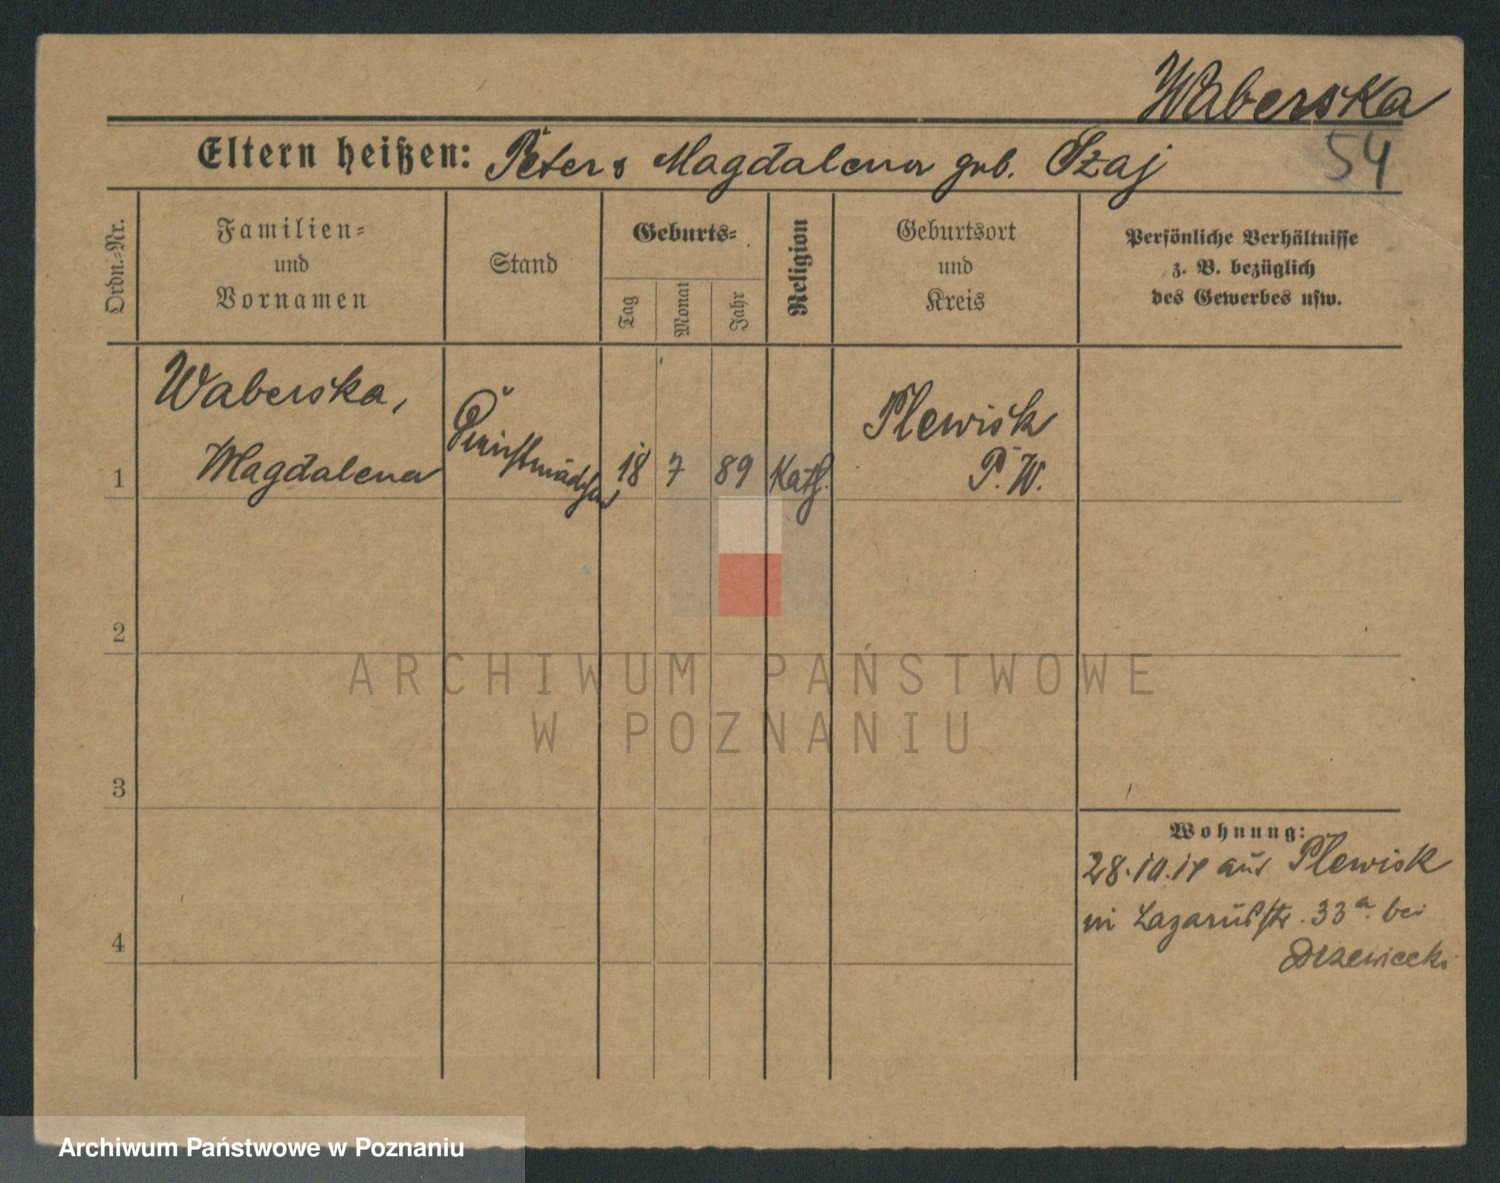 Waberska
54
Eltern heißen: Peter u Magdalena geb.
Ordn.-Nr.
Familien-
und
Vornamen
Stand
Geburts-
Tag
Monat
Jahr
Religion
Geburtsort
und
Kreis
Persönliche Verhältnisse
z. B. bezüglich
des Gewerbes usw.
1
Waberska,
Magdalena
Dienstmädchen
18
7
89
Kath.
Plewisk
P. W.
2
3
4
Wohnung:
28.10.14 aus Plewisk
in Lazarusstr. 33a. bei
Drzewiecki
ARCHIWUM PAŃSTWOWE
W POZNANIU
Archiwum Państwowe w Poznaniu